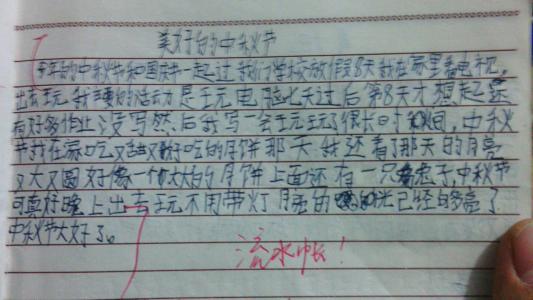 美好的中秋节
今年的中秋节和国庆一起过我们学校放假8天我在家里看电视,
出去玩我主要的活动是玩电脑七天过后第8天才想起来
有好多作业没写然后我写一会玩玩了很长时间,中秋
节我在家吃又甜又好吃的月饼那天我还看了那天的月亮
又大又圆好像一个大大的月饼上面还有一只兔子中秋节
可真好晚上出去玩不用带灯月亮的光已经够亮了
中秋节太好了。
流水帐!